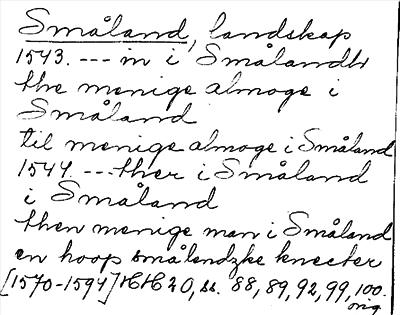 Småland, landskap
1543. --- in i Smålandh
the menige almoge i
Småland
til menige almoge i Småland
1544. --- ther i Småland
i Småland
then menige man i Småland
en hoop småländzke knecter
[1570-1594] HH 20, ss. 88, 89, 92, 99, 100.
orig.